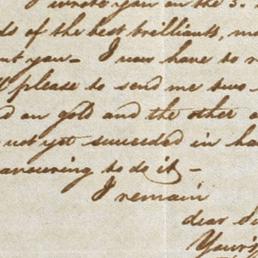 I wrote you on the 3.
ds of the best brilliants, mo
ut you - I now have to r
ll please to send me two
d on gold and the other o
not yet succeeded in ha
avouring to do it -
I remain
dear Si
Yours